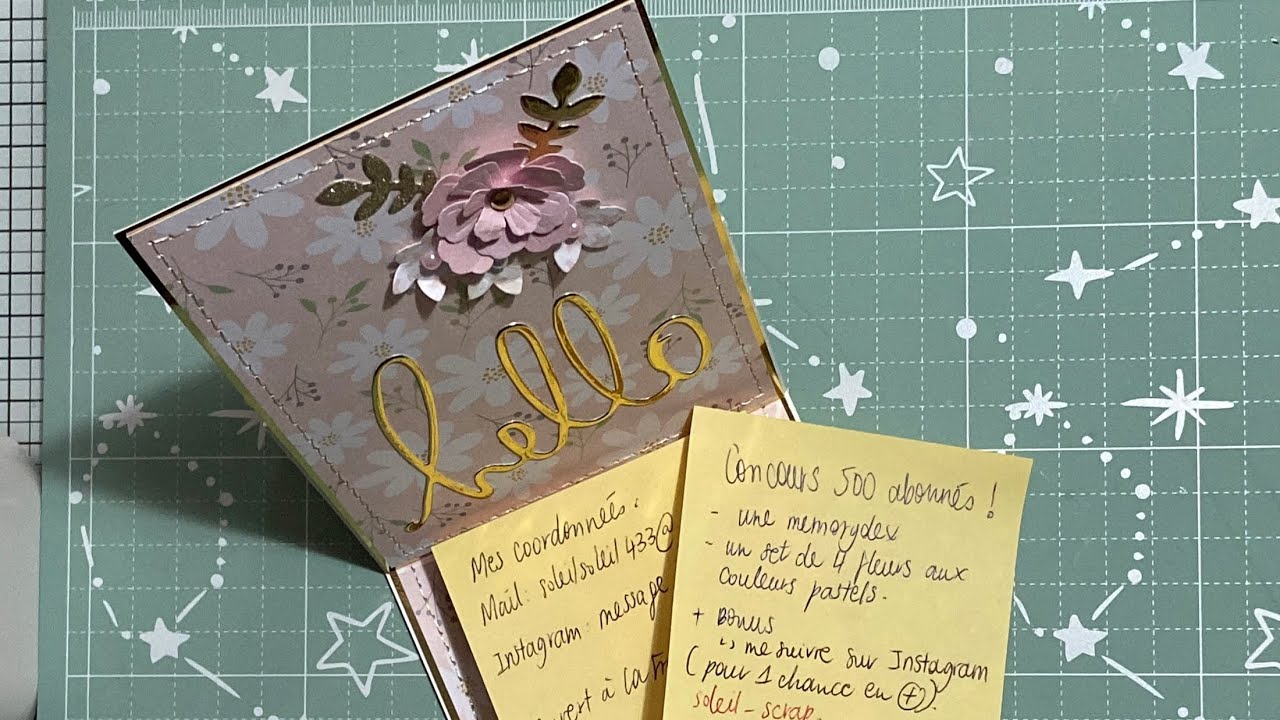 hello
Mes coordonnées:
Mail: soleilsoleil433@
Instagram: message
vert à la Fr
Concours 500 abonnés !
- une memorydex
- un set de 4 fleurs aux
couleurs pastels.
+ Bonus
↳ me suivre sur Instagram
(pour 1 chance en +).
soleil_scrap.